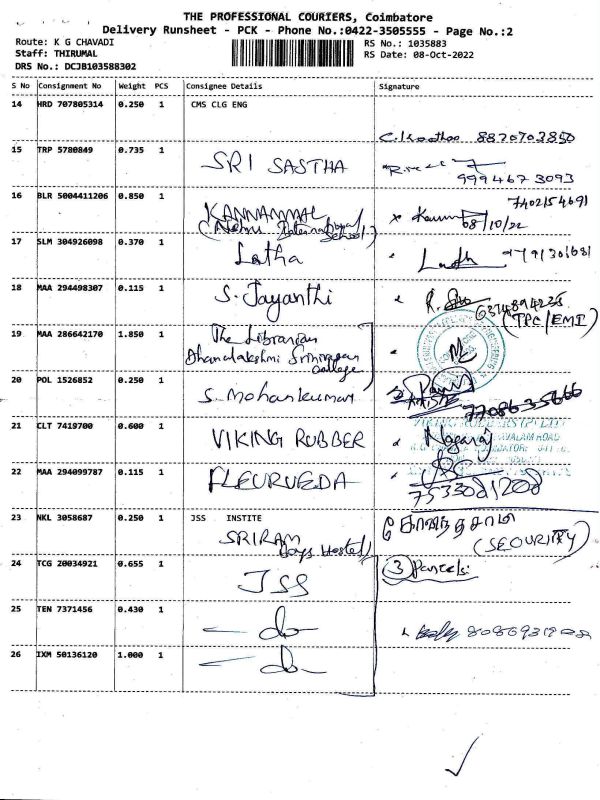 THE PROFESSIONAL COURIERS, Coimbatore
Delivery Runsheet - PCK - Phone No.:0422-3505555 - Page No.:2
Route: K G CHAVADI
RS No.: 1035883
Staff: THIRUMAL
RS Date: 08-Oct-2022
DRS No.: DCJB103588302
S No Consignment No Weight PCS Consignee Details Signature
14 HRD 707805314 0.250 1 CMS CLG ENG
8870703850
15 TRP 5780849 0.735 1 SRI SASTHA
9994673093
16 BLR 5004411206 0.850 1 KANNAMMAL
7402154691
(Nehru International School)
08/10/22
17 SLM 304926098 0.370 1 Latha Latha
18 MAA 294498307 0.115 1 S. Jayanthi
6374894235
(TPC/EMI)
19 MAA 286642170 1.850 1 The Librarian
Dhanalakshmi Srinivasan
College
20 POL 1526852 0.250 1 S. Mohankumar
7708635666
21 CLT 7419700 0.600 1 VIKING RUBBER Nagaraj
22 MAA 294099787 0.115 1 FLEURVEDA
23 NKL 3058687 0.250 1 JSS INSTITE
SRIRAM
Boys Hostel
கோவிந்தசாமி
(SECURITY)
24 TCG 20034921 0.655 1 JSS
3 Parcels
25 TEN 7371456 0.430 1 — do —
26 IXM 50136120 1.000 1 — do —